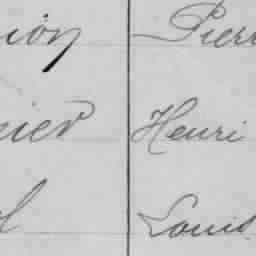 ion Pierr
nier Henri
l Louis